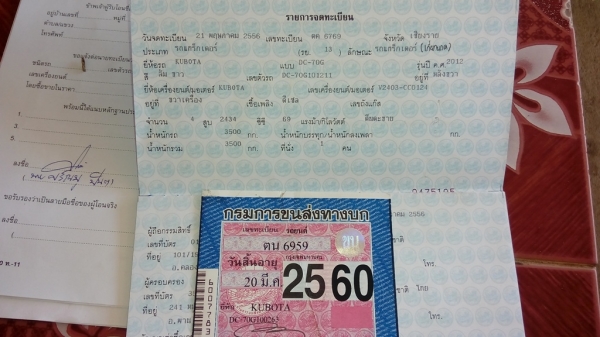 ข้าพเจ้าผู้รับโอนซื้อ
อยู่บ้านเลขที่
หมู่ที่
ตำบล
โทรศัพท์
ชนิดรถ
เลขเครื่องยนต์
โดยซื้อขายในราคา
พร้อมนี้ได้แนบหลักฐาน
1.
3.
5.
ลงชื่อ
ขอรับรองว่าเป็นลายมือชื่อของผู้โอนจริง
ลงชื่อ
รายการจดทะเบียน
วันจดทะเบียน 21 พฤษภาคม 2556 เลขทะเบียน ตค 6769 จังหวัด เชียงราย
ประเภท รถแทร็กเตอร์ (รย. 13 ) ลักษณะ รถแทร็กเตอร์
ยี่ห้อรถ KUBOTA แบบ DC-70G รุ่นปี ค.ศ. 2012
สี ส้ม ขาว เลขตัวรถ DC-70G101211 อยู่ที่ หลังขวา
ยี่ห้อเครื่องยนต์/มอเตอร์ KUBOTA เลขเครื่องยนต์/มอเตอร์ V2403-CCD124
อยู่ที่ ขวาเครื่อง เชื้อเพลิง ดีเซล เลขถังแก๊ส
จำนวน 4 สูบ 2434 ซีซี 69 แรงม้า/กิโลวัตต์
น้ำหนักรถ 3500 กก. น้ำหนักบรรทุก/น้ำหนักลงเพลา กก.
น้ำหนักรวม 3500 กก. ที่นั่ง 1 คน
คม 2556
ผู้ถือกรรมสิทธิ์
เลขที่บัตร
ชาติ
ที่อยู่ 101/1
โทร.
ผู้ครอบครอง
เลขที่บัตร
ชาติ ไทย
ที่อยู่ 241
โทร.
กรมการขนส่งทางบก
เลขทะเบียน รถยนต์
ตน 6959
กรุงเทพมหานคร
วันสิ้นอายุ
20 มี.ค. 2560
KUBOTA
DC-70G100263
6007783